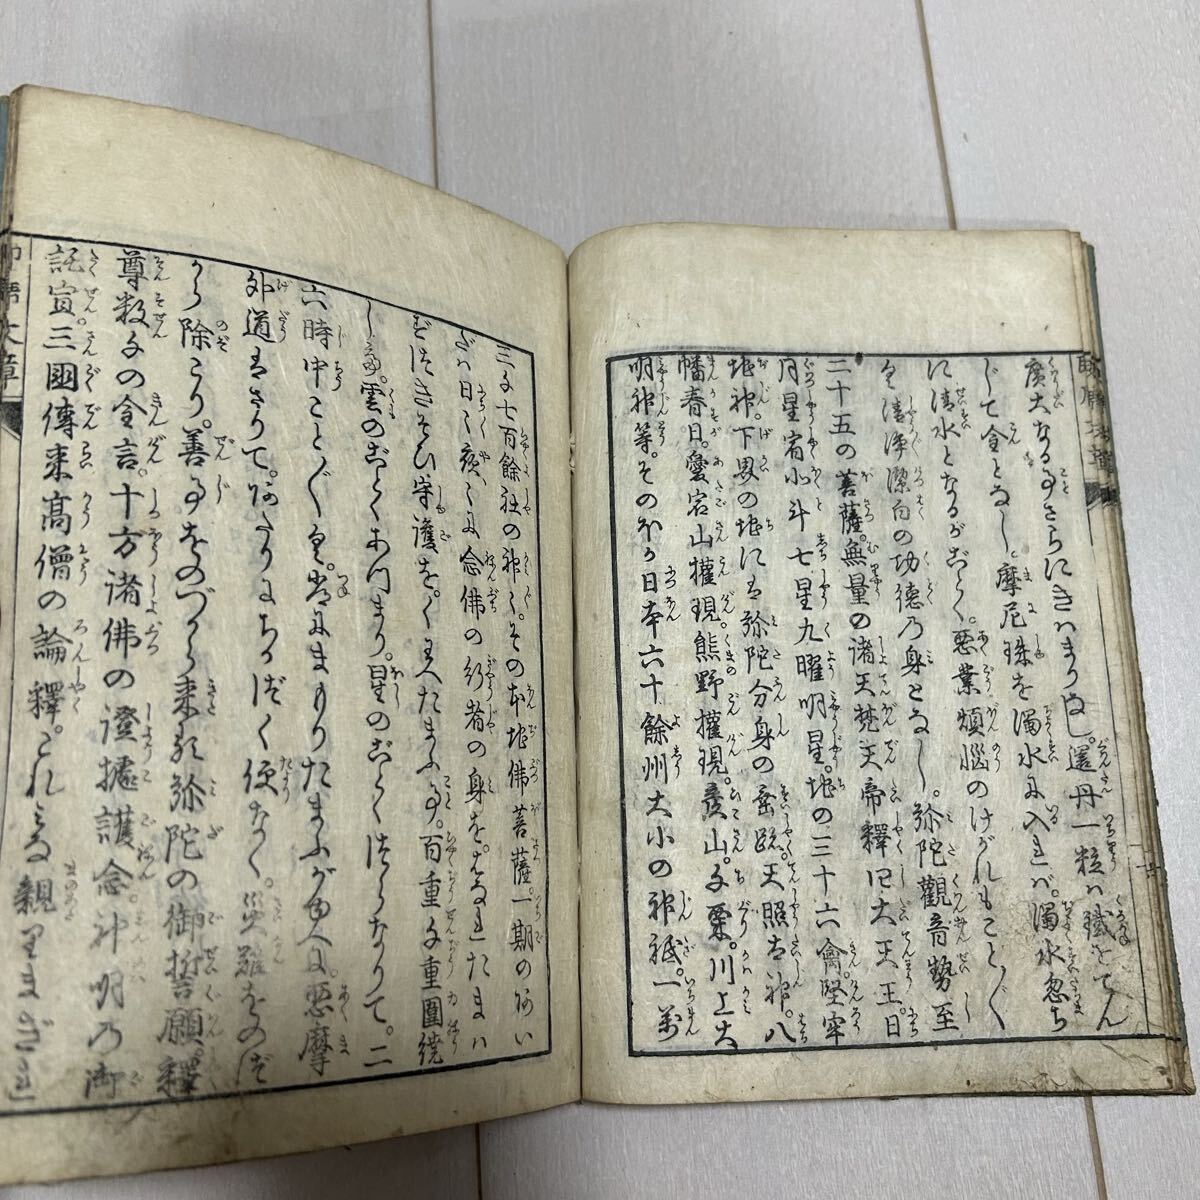 廣大なる事さらにきハまりなし。還丹一粒ハ鐵をてん
じて金となし。摩尼珠を濁水に入レバ。濁水忽ち
に清水となるがごとく。悪業煩悩のけがれもことぐ
く清浄潔白の功徳の身となし。弥陀觀音勢至
二十五の菩薩。無量の諸天梵天帝釋四大天王。日
月星宿北斗七星九曜明星。地の三十六禽堅牢
地神。下界の地には弥陀分身の垂跡。天照太神。八
幡春日。愛宕山權現。熊野權現。彦山。千栗。川上大
明神等。そのほか日本六十餘州大小の神祇。一萬
三千七百餘社の神々。その本地佛菩薩。一期のあい
だハ日々夜々に念佛の行者の身を。はなれたまハ
ずつきそひ守護を。くハへたまふ事。百重千重圍繞
し。雲のごとくあつまり。星のごとくつらなりて。二
六時中ことぐく。常にまもりたまふがゆへに。悪摩
外道もさりて。あたりにちかづく便なく。災難をのづ
から除こり。善事をのづから来る弥陀の御誓願。釋
尊数千の金言。十方諸佛の證據護念。神明の御
託宣。三國傳来高僧の論釋。これミな親りまぎれ